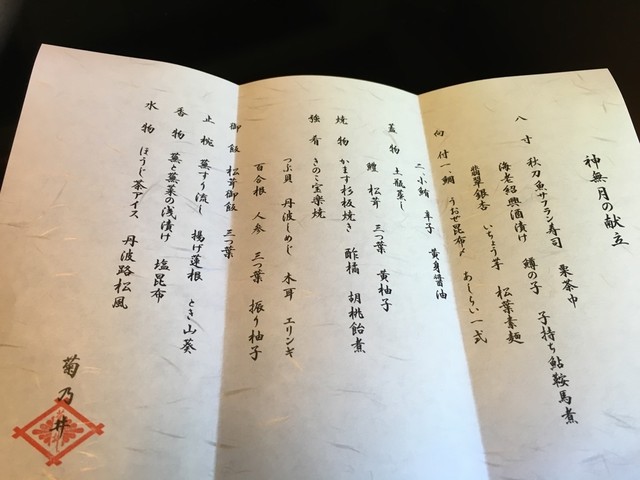 神無月の献立
八寸 秋刀魚サフラン寿司 栗茶巾
海老紹興酒漬け 鱧の子 子持ち鮎鞍馬煮
翡翠銀杏 いちょう芋 松葉素麺
向付 一、鯛 うおぜ昆布〆 あしらい一式
二、小鮪 辛子 黄身醤油
蓋物 土瓶蒸し
鱧 松茸 三つ葉 黄柚子
焼物 かます杉板焼き 酢橘 胡桃飴煮
強肴 きのこ宝楽焼
つぶ貝 丹波しめじ 木耳 エリンギ
百合根 人参 三つ葉 振り柚子
御飯 松茸御飯 三つ葉
止椀 蕪すり流し 揚げ蓮根 とき山葵
香物 蕪と蕪菜の浅漬け 塩昆布
水物 ほうじ茶アイス 丹波路松風
菊乃井